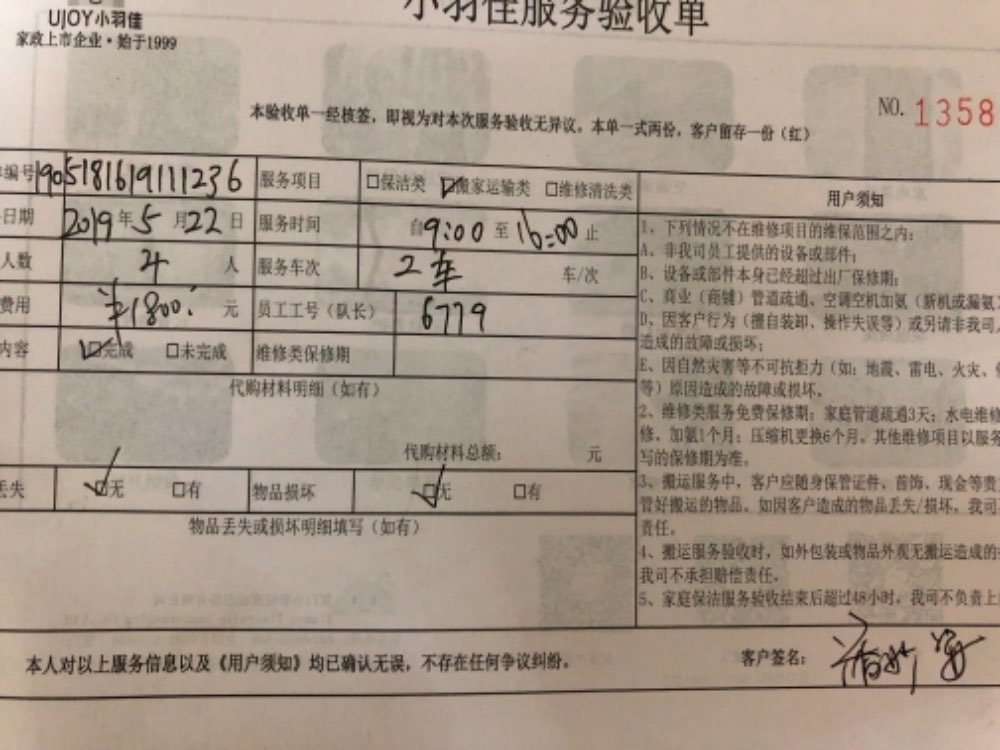 UJOY小羽佳
家政上市企业·始于1999
小羽佳服务验收单
本验收单一经核签，即视为对本次服务验收无异议。本单一式两份，客户留存一份（红）
NO. 1358
编号 1905181619111236 服务项目 □保洁类 ☑搬家运输类 □维修清洗类
日期 2019年5月22日 服务时间 自9:00至16:00止
人数 4人 服务车次 2车 车/次
费用 ¥1800. 元 员工工号（队长） 6779
内容 ☑完成 □未完成 维修类保修期
代购材料明细（如有）
代购材料总额： 元
丢失 ☑无 □有 物品损坏 ☑无 □有
物品丢失或损坏明细填写（如有）
用户须知
1、下列情况不在维修项目的维保范围之内：
A、非我司员工提供的设备或部件；
B、设备或部件本身已经超过出厂保修期；
C、商业（商铺）管道疏通、空调空机加氨（新机或漏氨）
D、因客户行为（擅自装卸、操作失误等）或另请非我司人
造成的故障或损坏；
E、因自然灾害等不可抗拒力（如：地震、雷电、火灾、
等）原因造成的故障或损坏。
2、维修类服务免费保修期：家庭管道疏通3天；水电维修
修、加氨1个月；压缩机更换6个月。其他维修项目以服务
写的保修期为准。
3、搬运服务中，客户应随身保管证件、首饰、现金等贵
管好搬运的物品。如因客户造成的物品丢失/损坏，我司
责任。
4、搬运服务验收时，如外包装或物品外观无搬运造成的
我司不承担赔偿责任。
5、家庭保洁服务验收结束后超过48小时，我司不负责上
本人对以上服务信息以及《用户须知》均已确认无误，不存在任何争议纠纷。
客户签名：